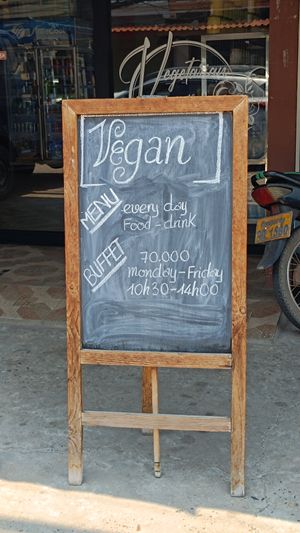 Vegetarian
Vegan
MENU
every day
Food - drink
BUFFET
70.000
monday - Friday
10h30 - 14h00